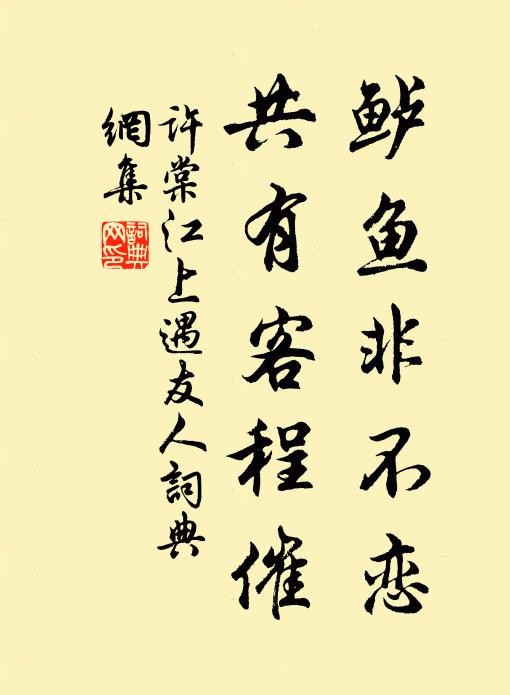 鲈鱼非不恋
共有客程催
许棠江上遇友人詞典
網集
詞典
网印